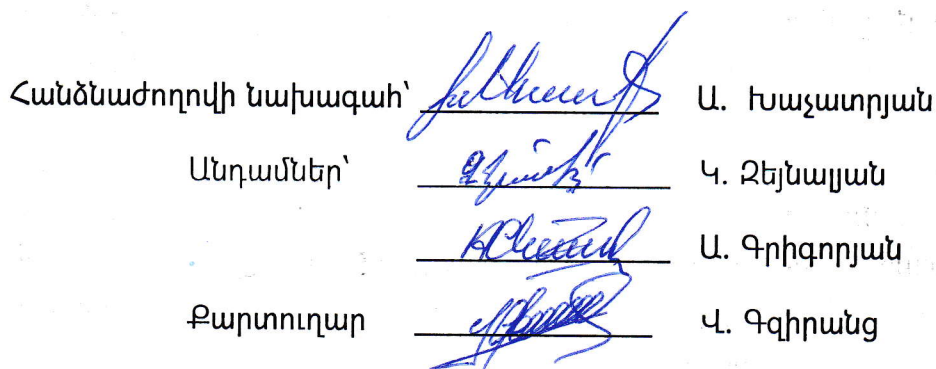 Հանձնաժողովի նախագահ՝ Ա. Խաչատրյան
Անդամներ՝ Կ. Զեյնալյան
Ա. Գրիգորյան
Քարտուղար Վ. Գզիրանց